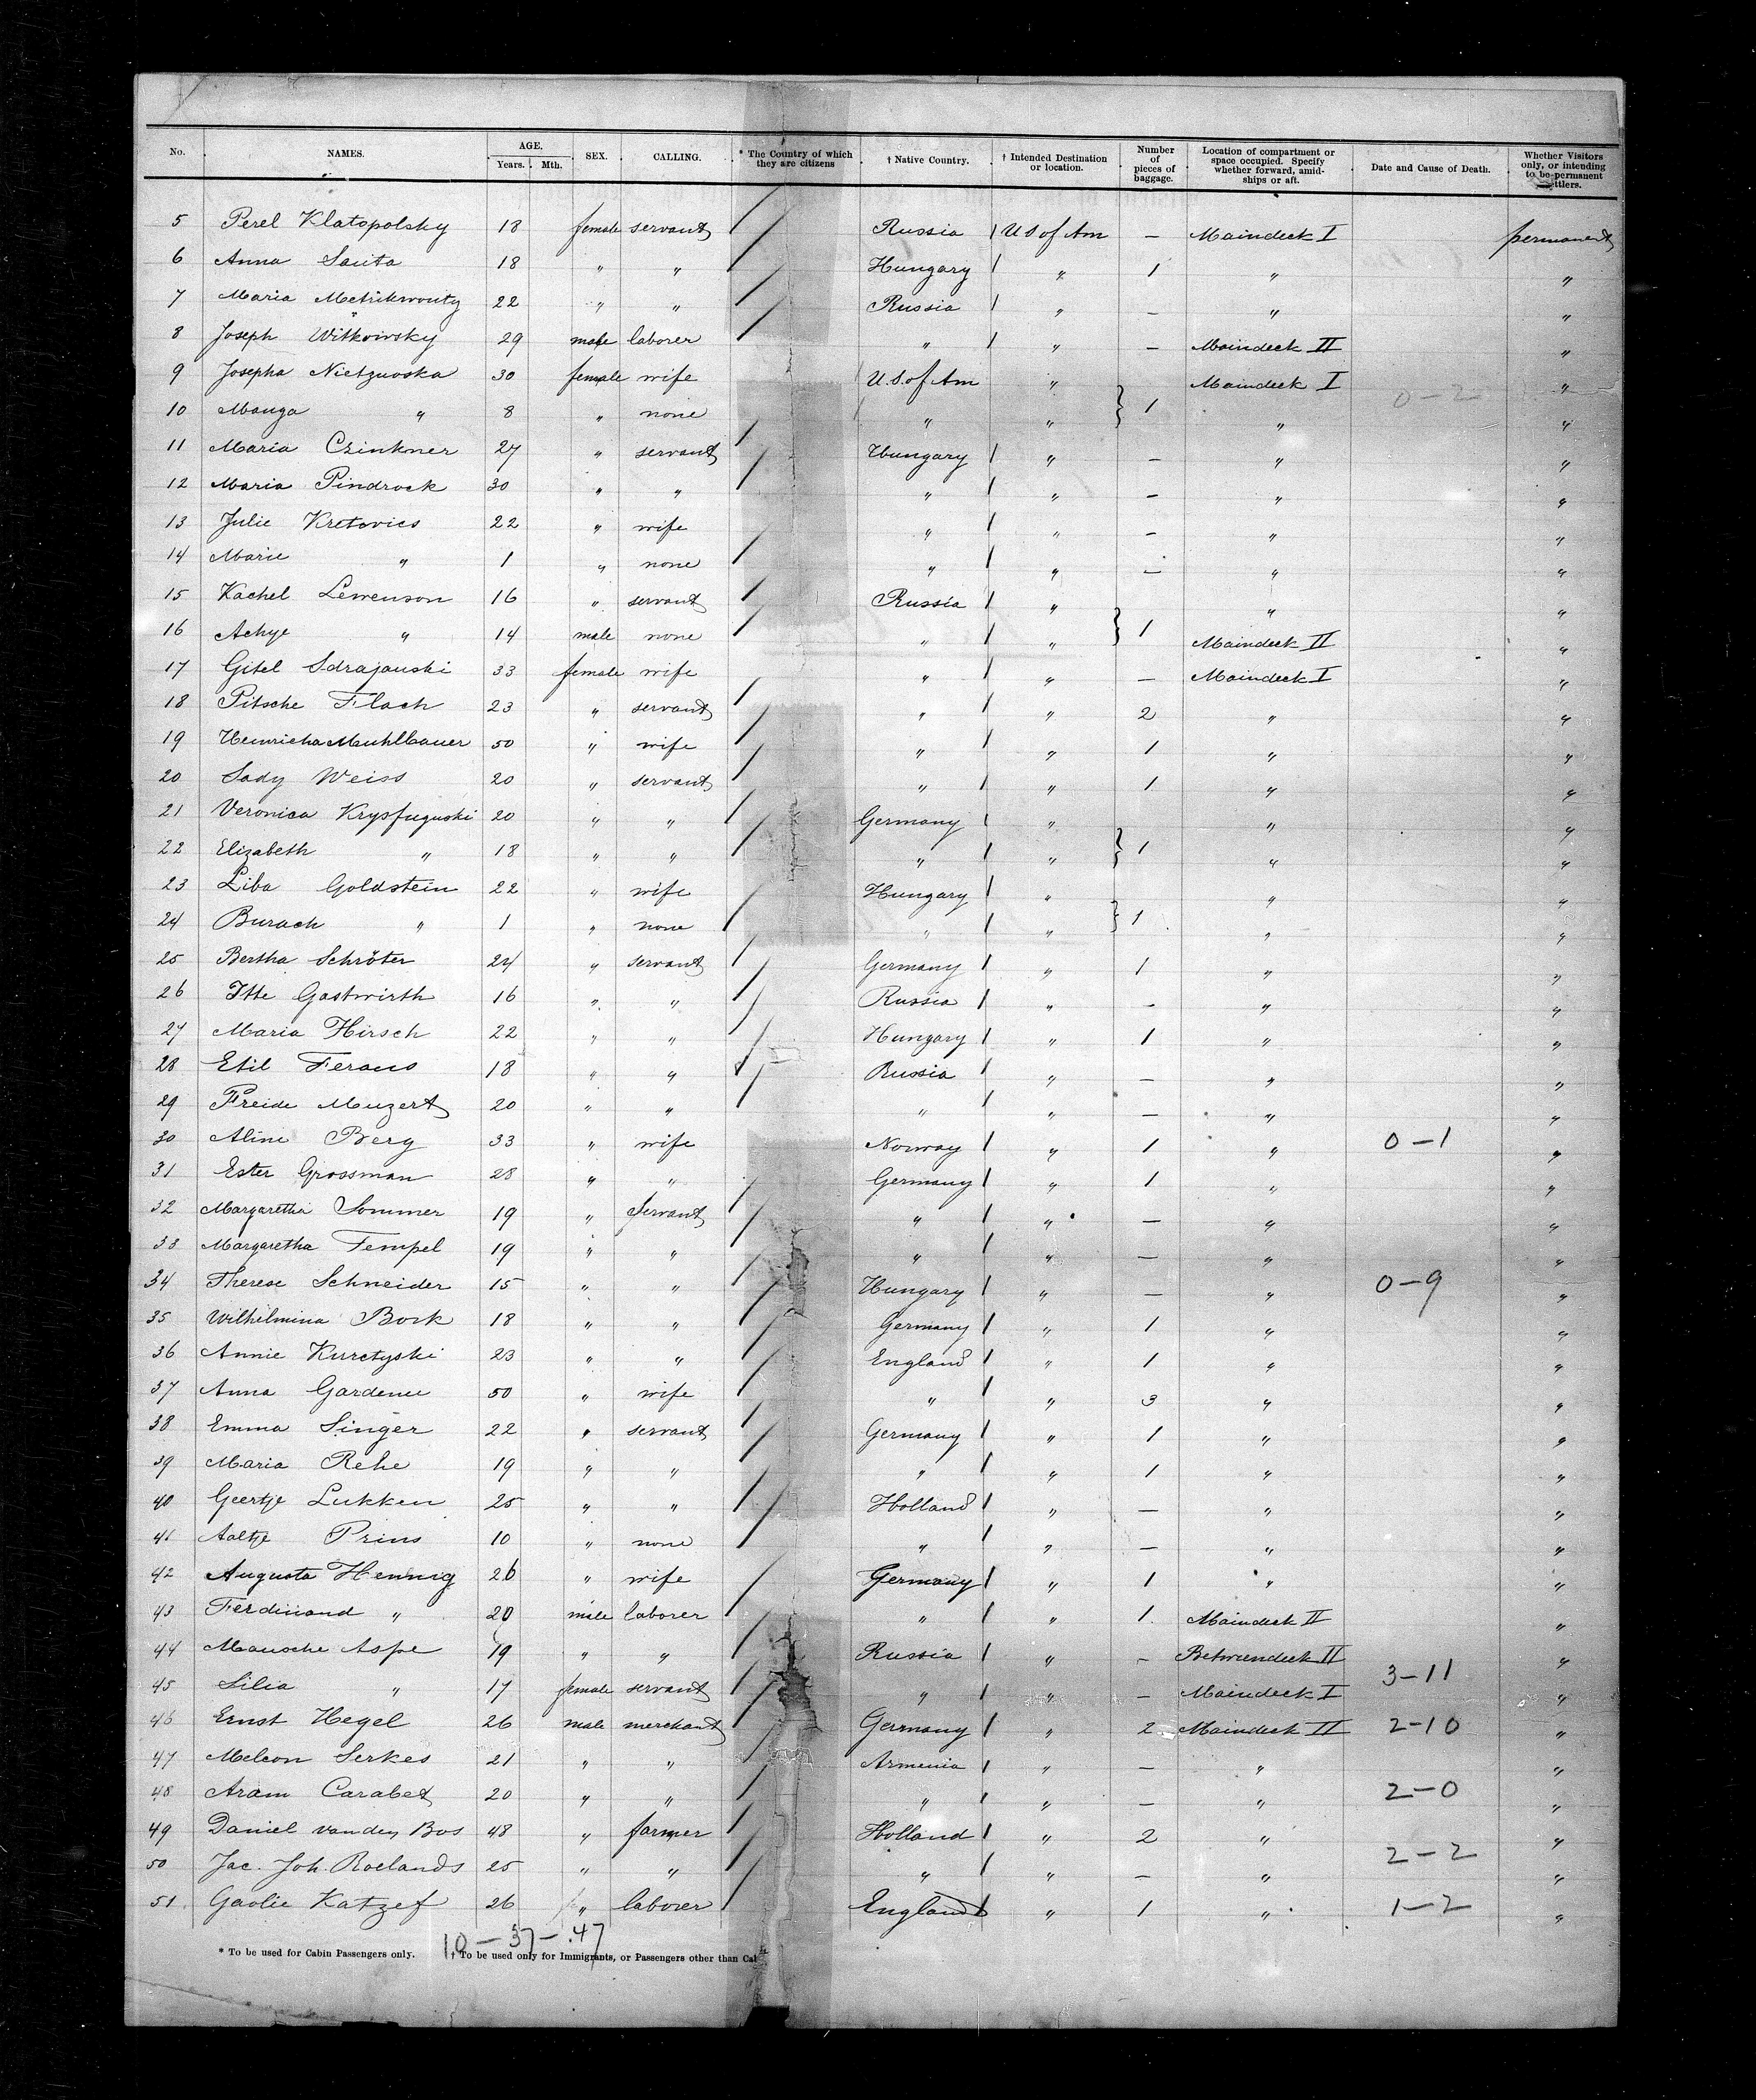 No. NAMES. AGE. Years. Mth. SEX. CALLING. * The Country of which they are citizens † Native Country. † Intended Destination or location. Number of pieces of baggage. Location of compartment or space occupied. Specify whether forward, amidships or aft. Date and Cause of Death. Whether Visitors only, or intending to be permanent settlers.
5 Perel Klatopolsky 18 female servant Russia U S of Am — Maindeck I permanent
6 Anna Sauta 18 " " Hungary " 1 " "
7 Maria 22 " " Russia " — " "
8 Joseph Witkowsky 29 male laborer " " — Maindeck II "
9 Josepha 30 female wife U.S. of Am " Maindeck I 0-2 "
10 Manga " 8 " none " " 1 " "
11 Maria Czinkner 27 " servant Hungary " — " "
12 Maria Pindrock 30 " " " " — " "
13 Julie Kretovics 22 " wife " " — " "
14 Marie " 1 " none " " — " "
15 Kachel Lewenson 16 " servant Russia " " "
16 Achye " 14 male none " " 1 Maindeck II "
17 Gitel Sdrajauski 33 female wife " " — Maindeck I "
18 Pitsche Flach 23 " servant " " 2 " "
19 Heinricha Muhlbauer 50 " wife " " 1 " "
20 Sady Weiss 20 " servant " " 1 " "
21 Veronica 20 " " Germany " " "
22 Elizabeth " 18 " " " " 1 " "
23 Liba Goldstein 22 " wife Hungary " " "
24 Burach " 1 " none " " 1 " "
25 Bertha Schröter 24 " servant Germany " 1 " "
26 Itte Gastwirth 16 " " Russia " — " "
27 Maria Hirsch 22 " " Hungary " 1 " "
28 Etil Feraus 18 " " Russia " — " "
29 Freide Muzert 20 " " " " — " "
30 Aline Berg 33 " wife Norway " 1 " 0-1 "
31 Ester Grossman 28 " " Germany " 1 " "
32 Margaretha Sommer 19 " Servant " " — " "
33 Margaretha Tempel 19 " " " " — " "
34 Therese Schneider 15 " " Hungary " — " 0-9 "
35 Wilhelmina Bork 18 " " Germany " 1 " "
36 Annie Kurctyski 23 " " England " 1 " "
37 Anna Gardenu 50 " wife " " 3 " "
38 Emma Singer 22 " servant Germany " 1 " "
39 Maria Rehe 19 " " " " 1 " "
40 Geertje Lukken 25 " " Holland " — " "
41 Aaltje Prins 10 " none " " — " "
42 Augusta Hennig 26 " wife Germany " 1 " "
43 Ferdinand " 20 male laborer " " 1 Maindeck II "
44 Mausche Aspe 19 " " Russia " — Betweendeck II "
45 Lilia " 17 female servant " " — Maindeck I 3-11 "
46 Ernst Hegel 26 male merchant Germany " 2 Maindeck II 2-10 "
47 Melcon Serkes 21 " " Armenia " — " "
48 Aram Carabet 20 " " " " — " 2-0 "
49 Daniel van den Bos 48 " farmer Holland " 2 " "
50 Jac. Joh. Roelands 25 " " " " — " 2-2 "
51. Gaolie Katzef 26 " laborer England " 1 " 1-2 "
10-37-47
* To be used for Cabin Passengers only. † To be used only for Immigrants, or Passengers other than Cab